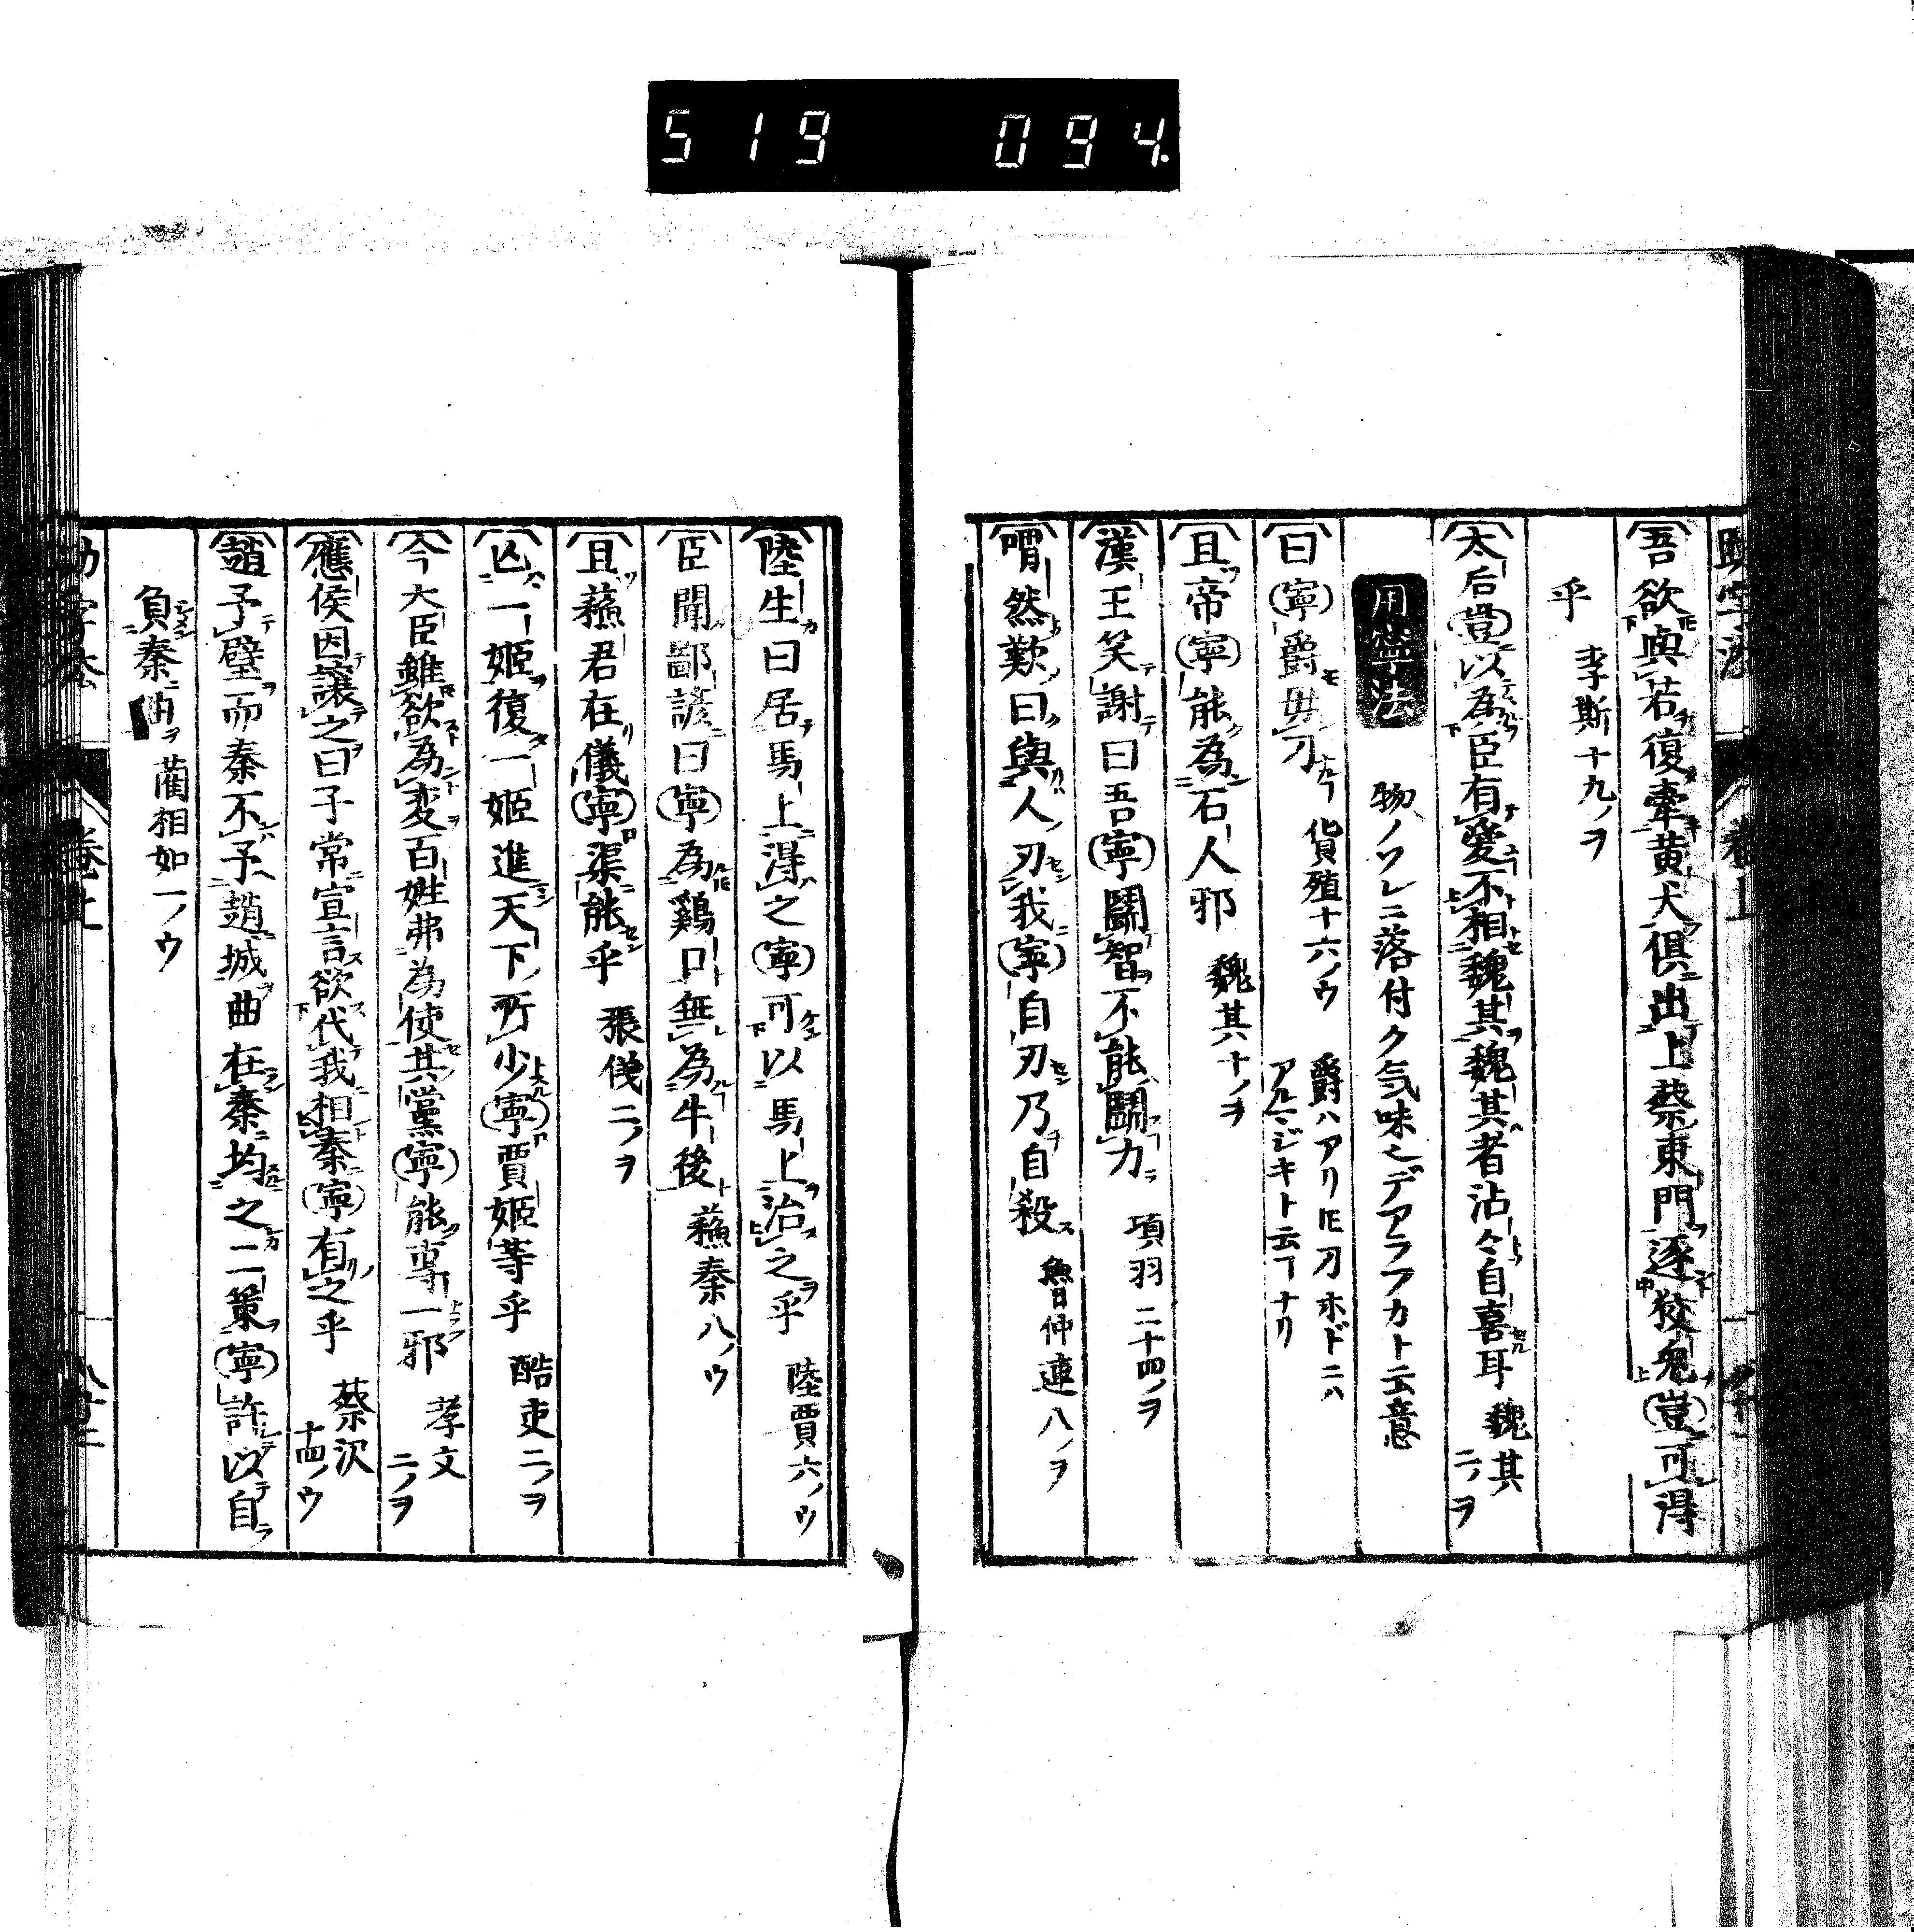 519 094
吾欲與若復牽黃犬俱出上蔡東門逐狡兔豈可得
乎 李斯十九ノヲ
太后豈以為臣有愛不相魏其魏其者沾々自喜耳 魏其二ノヲ
用寧法 物ノワレニ落付ク気味ニデアラフカト云意
曰寧爵毋刀 貨殖十六ノウ 爵ハアリ𪜈刀ホドニハアルマジキト云ヿナリ
且帝寧能為石人邪 魏其十ノヲ
漢王笑謝曰吾寧鬪智不能鬪力 項羽二十四ノヲ
喟然歎曰與人刃我寧自刃乃自殺 魯仲連八ノヲ
陸生曰居馬上淂之寧可以馬上治之乎 陸賈六ノウ
臣聞鄙諺曰寧為鷄口無為牛後 蘓秦八ノウ
且蘓君在儀寧渠能乎 張儀二ノヲ
亾一姬復一姬進天下所少寧賈姬等乎 酷吏二ノヲ
今大臣雖欲為変百姓弗為使其黨寧能専一邪 孝文二ノヲ
應侯因讓之曰子常宣言欲代我相秦寧有之乎 蔡沢十四ノウ
趙予璧而秦不予趙城曲在秦均之二策寧許以自
負秦曲 藺相如一ノウ